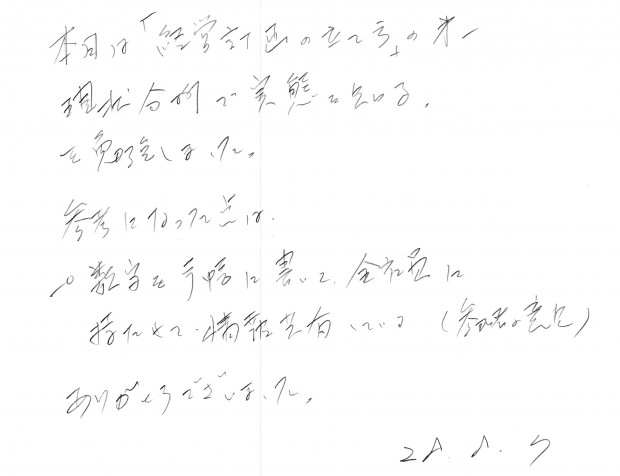 本日は「経営計画の立て方」の第一
現状分析で実態を知る。
を勉強しました。
参考になった点は、
○数字を手帳に書いて、全社員に
持たせて、情報共有している(参加者の意見)
ありがとうございました。
28. 8. 9